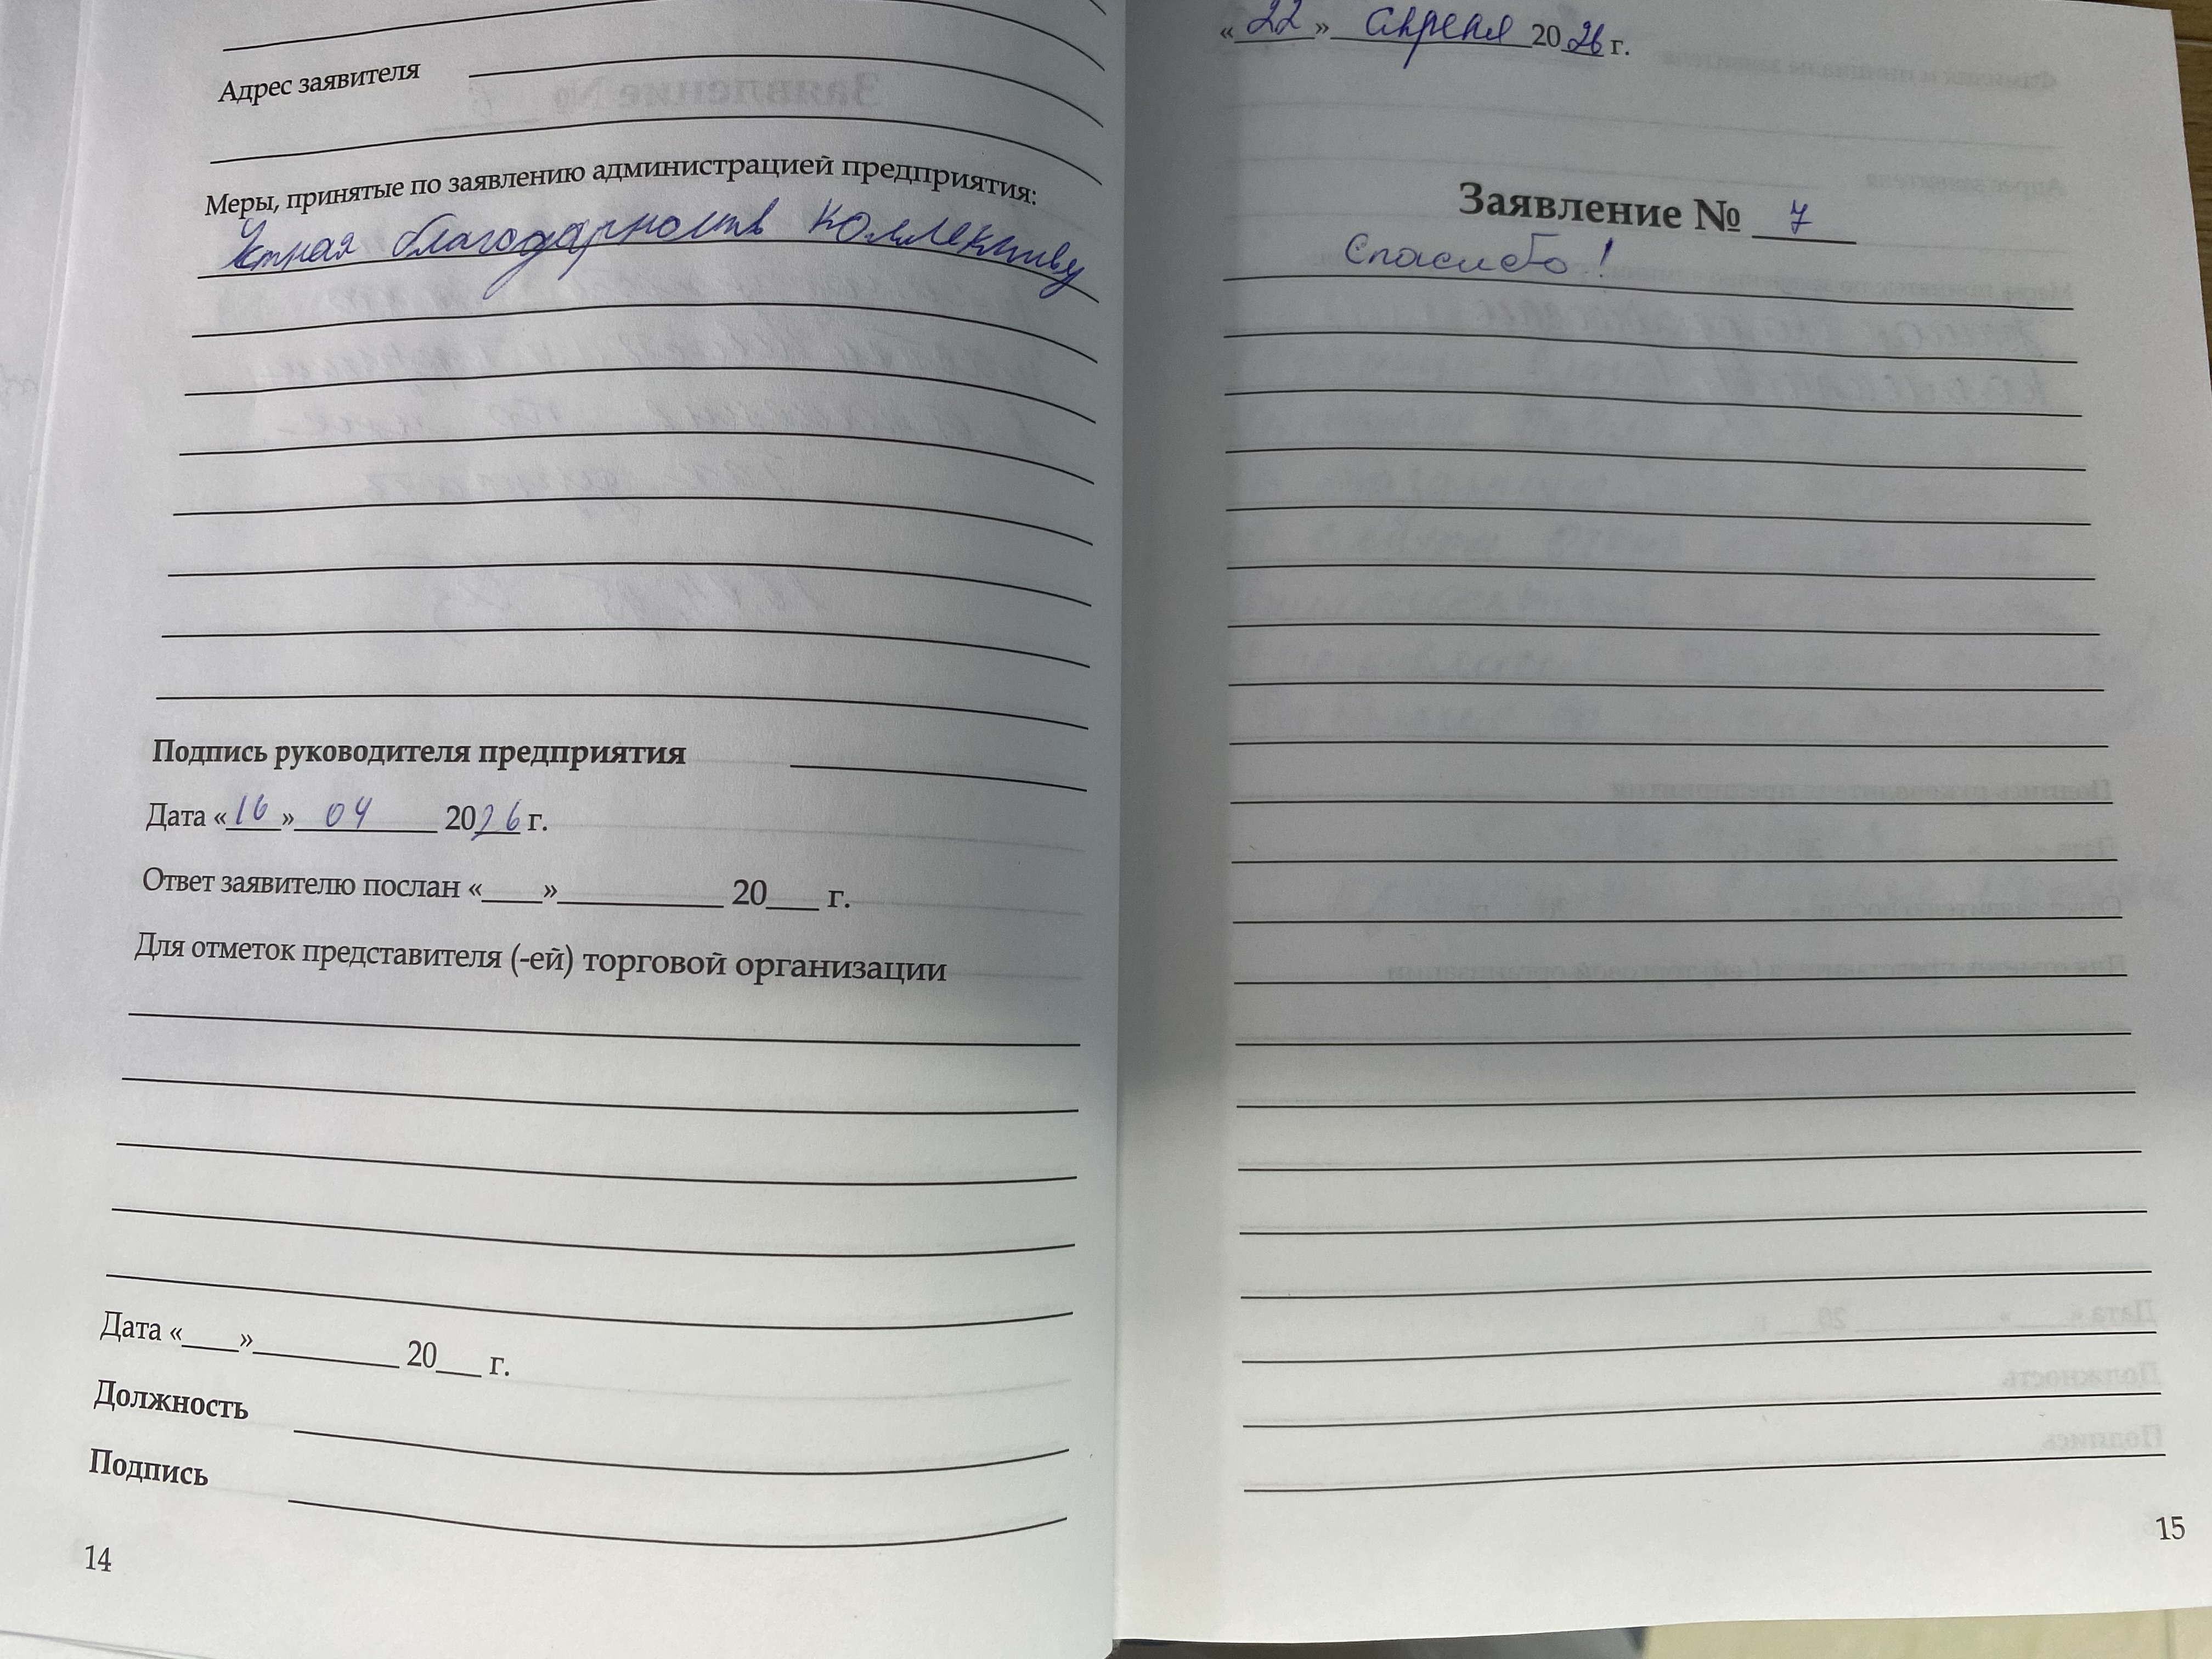 Адрес заявителя
Меры, принятые по заявлению администрацией предприятия:
Устная благодарность коллективу
Подпись руководителя предприятия
Дата «16» 04 2026 г.
Ответ заявителю послан «___»_________ 20___ г.
Для отметок представителя (-ей) торговой организации
Дата «___»_________ 20___ г.
Должность
Подпись
14
«22» апреля 2026 г.
Заявление № 7
Спасибо!
15